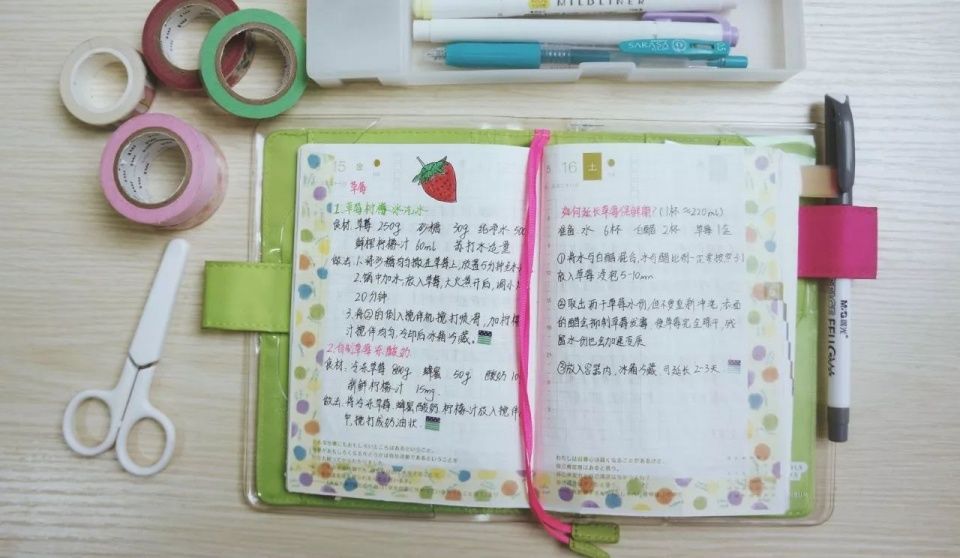 MILDLINER
SARASA
15 金
草莓
1.草莓柠檬冰汽水
食材:草莓 250g 砂糖 50g 纯净水 500
鲜榨柠檬汁 60ml 苏打水适量
做法:1.将砂糖均匀撒在草莓上,放置5分钟
2.锅中加水,放入草莓,大火煮开后,调小
20分钟
3.将②的倒入搅拌机搅打成泥,加柠檬
汁搅拌均匀,冷却后冰箱冷藏。
2.自制草莓冻酸奶
食材:冷冻草莓 800g 蜂蜜 50g 酸奶 10
新鲜柠檬汁 15mg
做法:将冷冻草莓.蜂蜜.酸奶.柠檬汁放入搅拌
中,搅打成奶油状.
16 土
如何延长草莓保鲜期?(1杯≈220ml)
准备 水 6杯 白醋 2杯 草莓 1盒
①将水与白醋混合,水与醋比例一定要按照3:1
放入草莓浸泡5-10min
②取出两干草莓水份,但不要重新冲洗,表面
的醋会抑制草莓成霉,使草莓完全晾干,残
留水份也会加速变质
③放入容器内,冰箱冷藏,可延长2-3天.
M&G 晨光